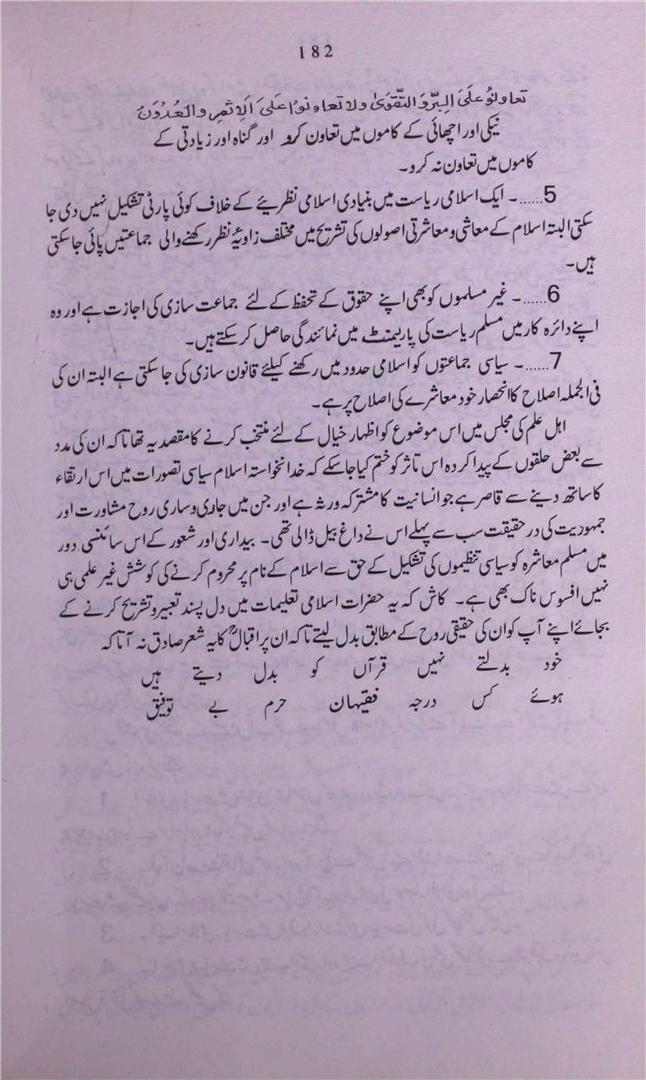 182
تعاونُو عَلَى البِرِّ وَ التَّقوَىٰ ولا تعاونُوا عَلیَ الاِثمِ والعُدُوَن
نیکی اور اچھائی کے کاموں میں تعاون کرو اور گناہ اور زیادتی کے
کاموں میں تعاون نہ کرو۔
5......۔ ایک اسلامی ریاست میں بنیادی اسلامی نظریئے کے خلاف کوئی پارٹی تشکیل نہیں دی جا
سکتی البتہ اسلام کے معاشی و معاشرتی اصولوں کی تشریح میں مختلف زاویۂ نظر رکھنے والی جماعتیں پائی جا سکتی
ہیں۔
6......۔ غیر مسلموں کو بھی اپنے حقوق کے تحفظ کے لئے جماعت سازی کی اجازت ہے اور وہ
اپنے دائرہ کار میں مسلم ریاست کی پارلیمنٹ میں نمائندگی حاصل کر سکتے ہیں۔
7......۔ سیاسی جماعتوں کو اسلامی حدود میں رکھنے کیلئے قانون سازی کی جا سکتی ہے البتہ ان کی
فی الجملہ اصلاح کا انحصار خود معاشرے کی اصلاح پر ہے۔
اہل علم کی مجلس میں اس موضوع کو اظہار خیال کے لئے منتخب کرنے کا مقصد یہ تھا تاکہ ان کی مدد
سے بعض حلقوں کے پیدا کردہ اس تاثر کو ختم کیا جا سکے کہ خدانخواستہ اسلام سیاسی تصورات میں اس ارتقاء
کا ساتھ دینے سے قاصر ہے جو انسانیت کا مشترکہ ورثہ ہے اور جن میں جاری و ساری روح مشاورت اور
جمہوریت کی در حقیقت سب سے پہلے اس نے داغ بیل ڈالی تھی۔ بیداری اور شعور کے اس سائنسی دور
میں مسلم معاشرہ کو سیاسی تنظیموں کی تشکیل کے حق سے اسلام کے نام پر محروم کرنے کی کوشش غیر علمی ہی
نہیں افسوس ناک بھی ہے۔ کاش کہ یہ حضرات اسلامی تعلیمات میں دل پسند تعبیر و تشریح کرنے کے
بجائے اپنے آپ کو ان کی حقیقی روح کے مطابق بدل لیتے تاکہ ان پر اقبالؒ کا یہ شعر صادق نہ آتا کہ
خود بدلتے نہیں قرآں کو بدل دیتے ہیں
ہوئے کس درجہ فقیہان حرم بے توفیق